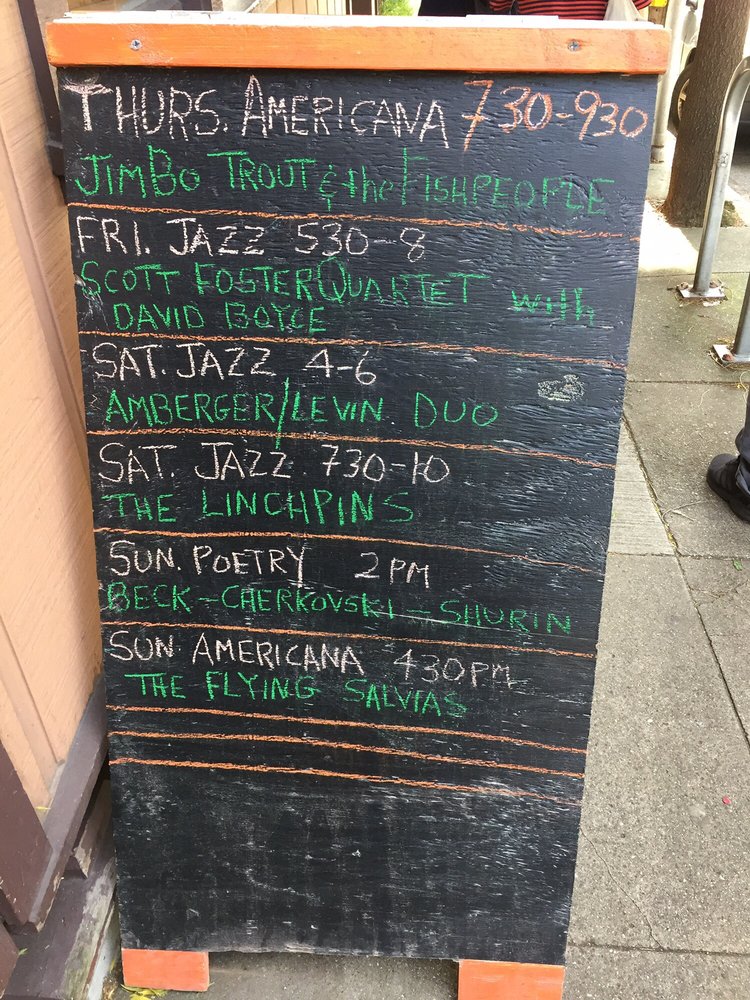 THURS. AMERICANA 730-930
JIMBO TROUT & the FISHPEOPLE
FRI. JAZZ 530-8
SCOTT FOSTER QUARTET with
DAVID BOYCE
SAT. JAZZ 4-6
AMBERGER/LEVIN DUO
SAT. JAZZ 730-10
THE LINCHPINS
SUN. POETRY 2PM
BECK-CHERKOVSKI-SHURIN
SUN AMERICANA 430PM
THE FLYING SALVIAS